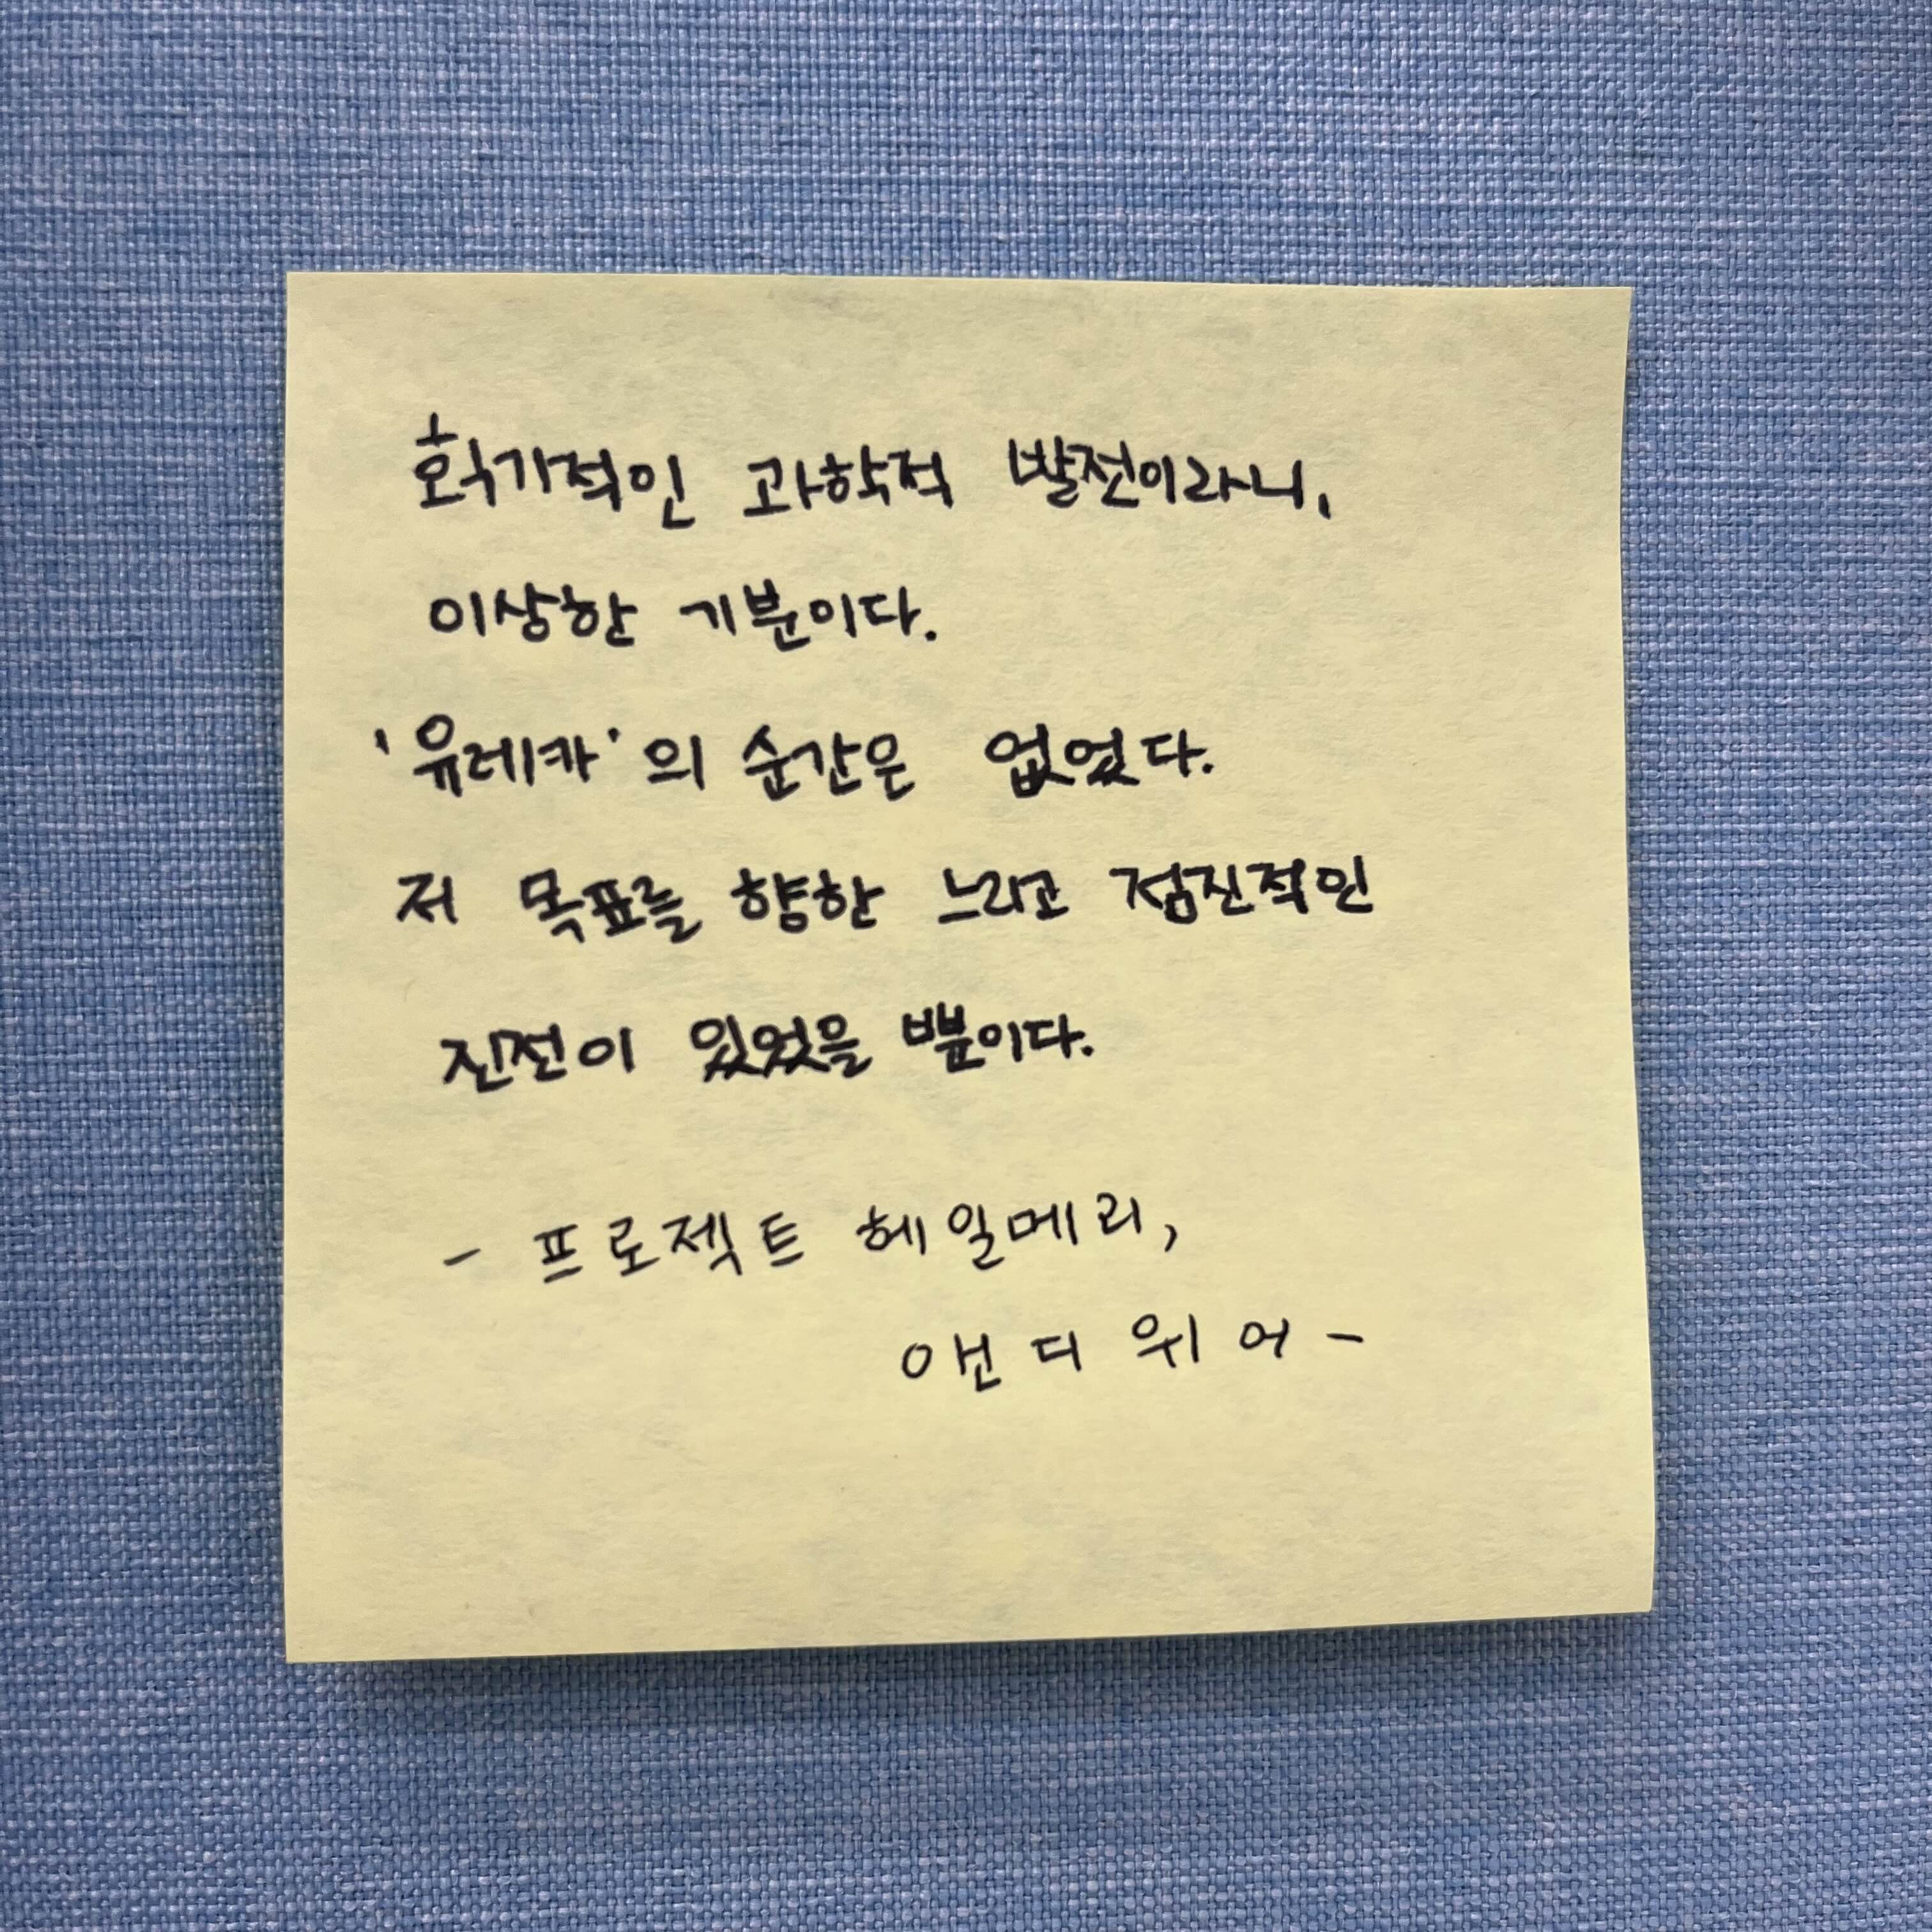 획기적인 과학적 발전이라니,
이상한 기분이다.
'유레카'의 순간은 없었다.
저 목표를 향한 느리고 점진적인
진전이 있었을 뿐이다.
- 프로젝트 헤일메리,
앤디 위어 -